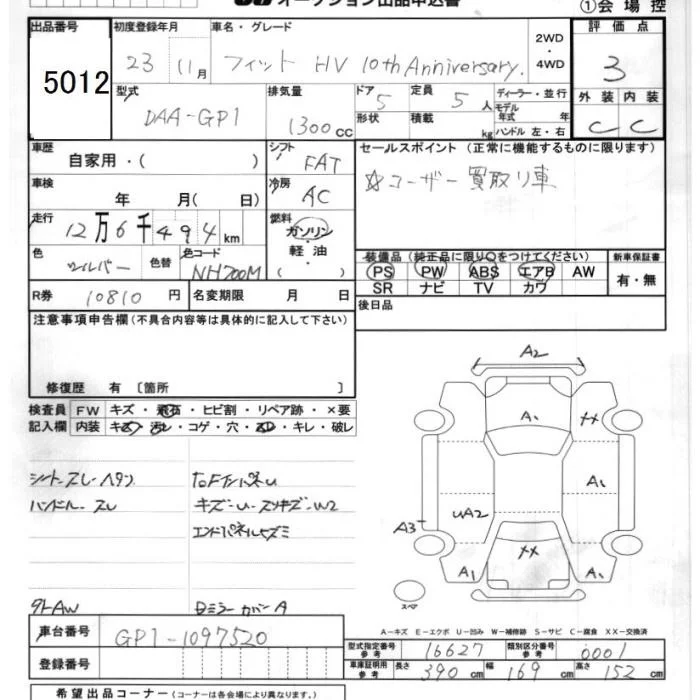 オークション出品申込書
①会場控
出品番号
5012
初度登録年月
23 11月
車名・グレード
フィット HV 10th Anniversary.
2WD
・
4WD
評価点
3
型式
DAA-GP1
排気量
1300cc
ドア
5
定員
5人
ディーラー・並行
モデル年式 年
形状
積載
kg
ハンドル 左・右
外装 内装
C C
車歴
自家用・( )
シフト
FAT
セールスポイント (正常に機能するものに限ります)
☆ユーザー買取り車
車検
年 月( 日)
冷房
AC
走行
12万6千494km
燃料
ガソリン
・
軽油
( )
色
シルバー
色替
色コード
NH700M
装備品 (純正品に限り○をつけてください)
PS PW ABS エアB AW
SR ナビ TV カワ
新車保証書
有・無
R券
10810円
名変期限 月 日
後日品
注意事項申告欄 (不具合内容等は具体的に記入して下さい)
修復歴 有 [箇所 ]
検査員
記入欄
FW キズ・飛石・ヒビ割・リペア跡・×要
内装 キズ・汚レ・コゲ・穴・スレ・キレ・破レ
シートスレ・ヘタリ
ハンドルスレ
キズ-U-スリキズ-W2
エンドパネルヒズミ
外AW
ミラーカバーA
A2
A1
XX
A1
UA2
A3
XX
A1
A1
スペア
A-キズ E-エクボ U-凹み W-補修跡 S-サビ C-腐食 XX-交換済
車台番号
GP1-1097520
登録番号
型式指定番号
参考
16627
類別区分番号
参考
0001
車庫証明用
参考
長さ 390cm 幅 169cm 高さ 152cm
希望出品コーナー (コーナーは各会場により異なります。)